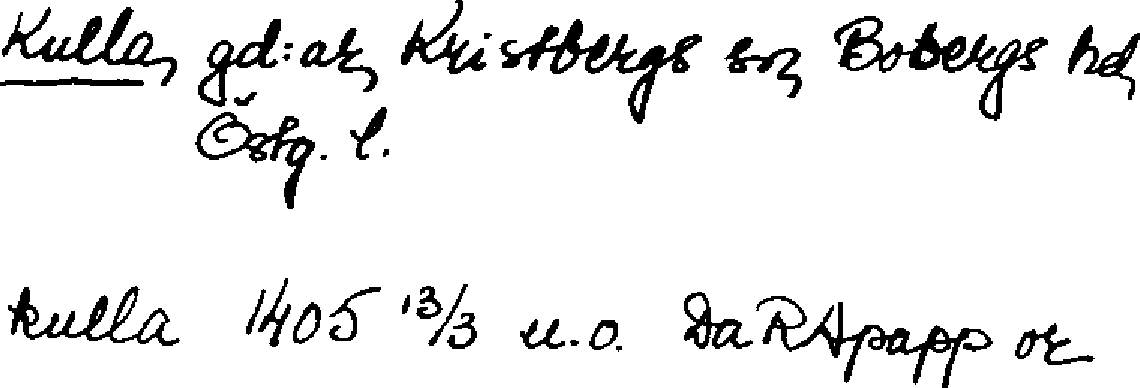 Kulla, gd:ar, Kristbergs sn, Bobergs hd,
Östg. l.
kulla 1405 13/3 u.o. DaRApapp or